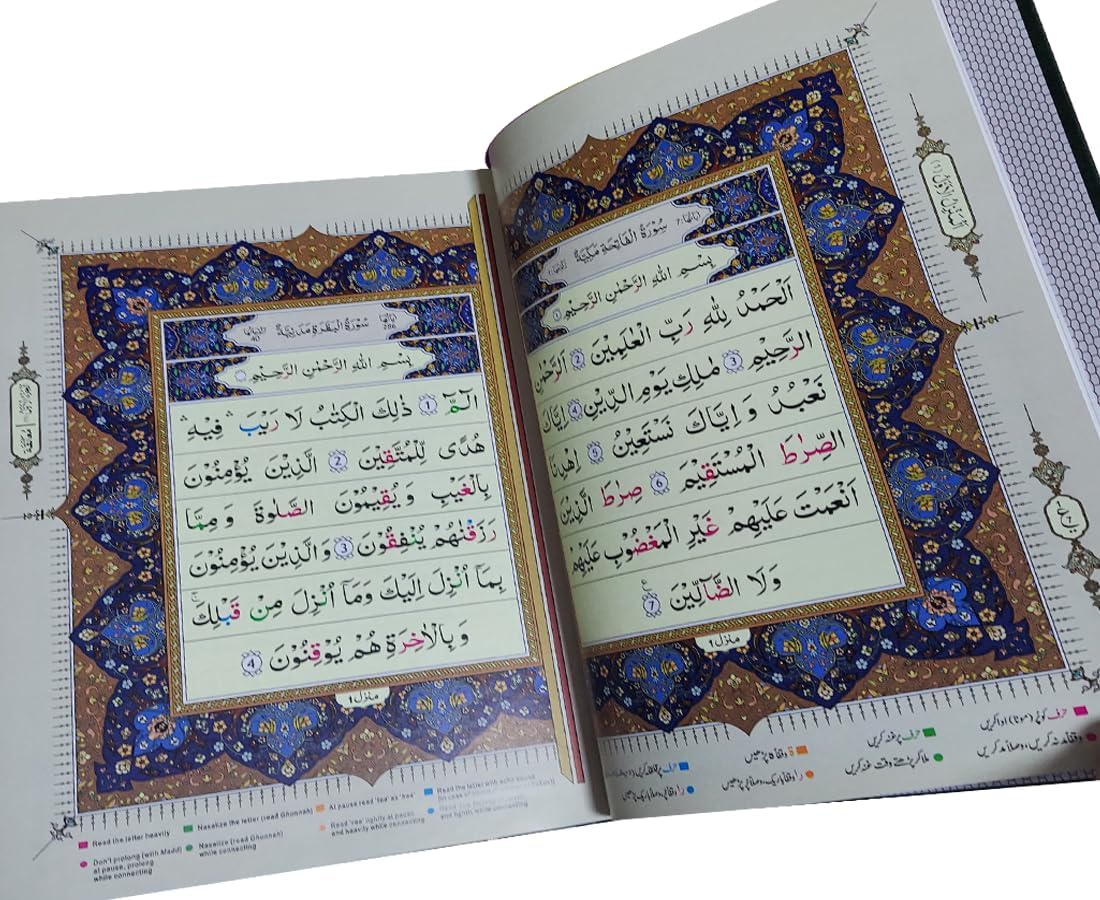 سُوْرَةُ الْفَاتِحَةِ مَكِّيَّةٌ
بِسْمِ اللّٰهِ الرَّحْمٰنِ الرَّحِيْمِ ۝1
اَلْحَمْدُ لِلّٰهِ رَبِّ الْعٰلَمِيْنَ ۝2 الرَّحْمٰنِ
الرَّحِيْمِ ۝3 مٰلِكِ يَوْمِ الدِّيْنِ ۝4 اِيَّاكَ
نَعْبُدُ وَ اِيَّاكَ نَسْتَعِيْنُ ۝5 اِهْدِنَا
الصِّرٰطَ الْمُسْتَقِيْمَ ۝6 صِرٰطَ الَّذِيْنَ
اَنْعَمْتَ عَلَيْهِمْ غَيْرِ الْمَغْضُوْبِ عَلَيْهِمْ
وَلَا الضَّآلِّيْنَ ۝7
منزل ۱
حرف کو پُر (موٹا) ادا کریں
حرف پر غنہ کریں
سُوْرَةُ الْبَقَرَةِ مَدَنِيَّةٌ
286
40
بِسْمِ اللّٰهِ الرَّحْمٰنِ الرَّحِيْمِ
الٓمّٓ ۝1 ذٰلِكَ الْكِتٰبُ لَا رَيْبَ ۛ فِيْهِ ۛ
هُدًى لِّلْمُتَّقِيْنَ ۝2 الَّذِيْنَ يُؤْمِنُوْنَ
بِالْغَيْبِ وَ يُقِيْمُوْنَ الصَّلٰوةَ وَ مِمَّا
رَزَقْنٰهُمْ يُنْفِقُوْنَ ۝3 وَالَّذِيْنَ يُؤْمِنُوْنَ
بِمَآ اُنْزِلَ اِلَيْكَ وَمَآ اُنْزِلَ مِنْ قَبْلِكَ ۚ
وَ بِالْاٰخِرَةِ هُمْ يُوْقِنُوْنَ ۝4
منزل ۱
Read the letter heavily
Nasalize the letter (read Ghunnah)
At pause read 'taa' as 'haa'
Read the letter with echo sound
Don't prolong (with Madd)
at pause, prolong
while connecting
Nasalize (read Ghunnah)
while connecting
Read 'raa' lightly at pause
and heavily while connecting
and lightly while connecting